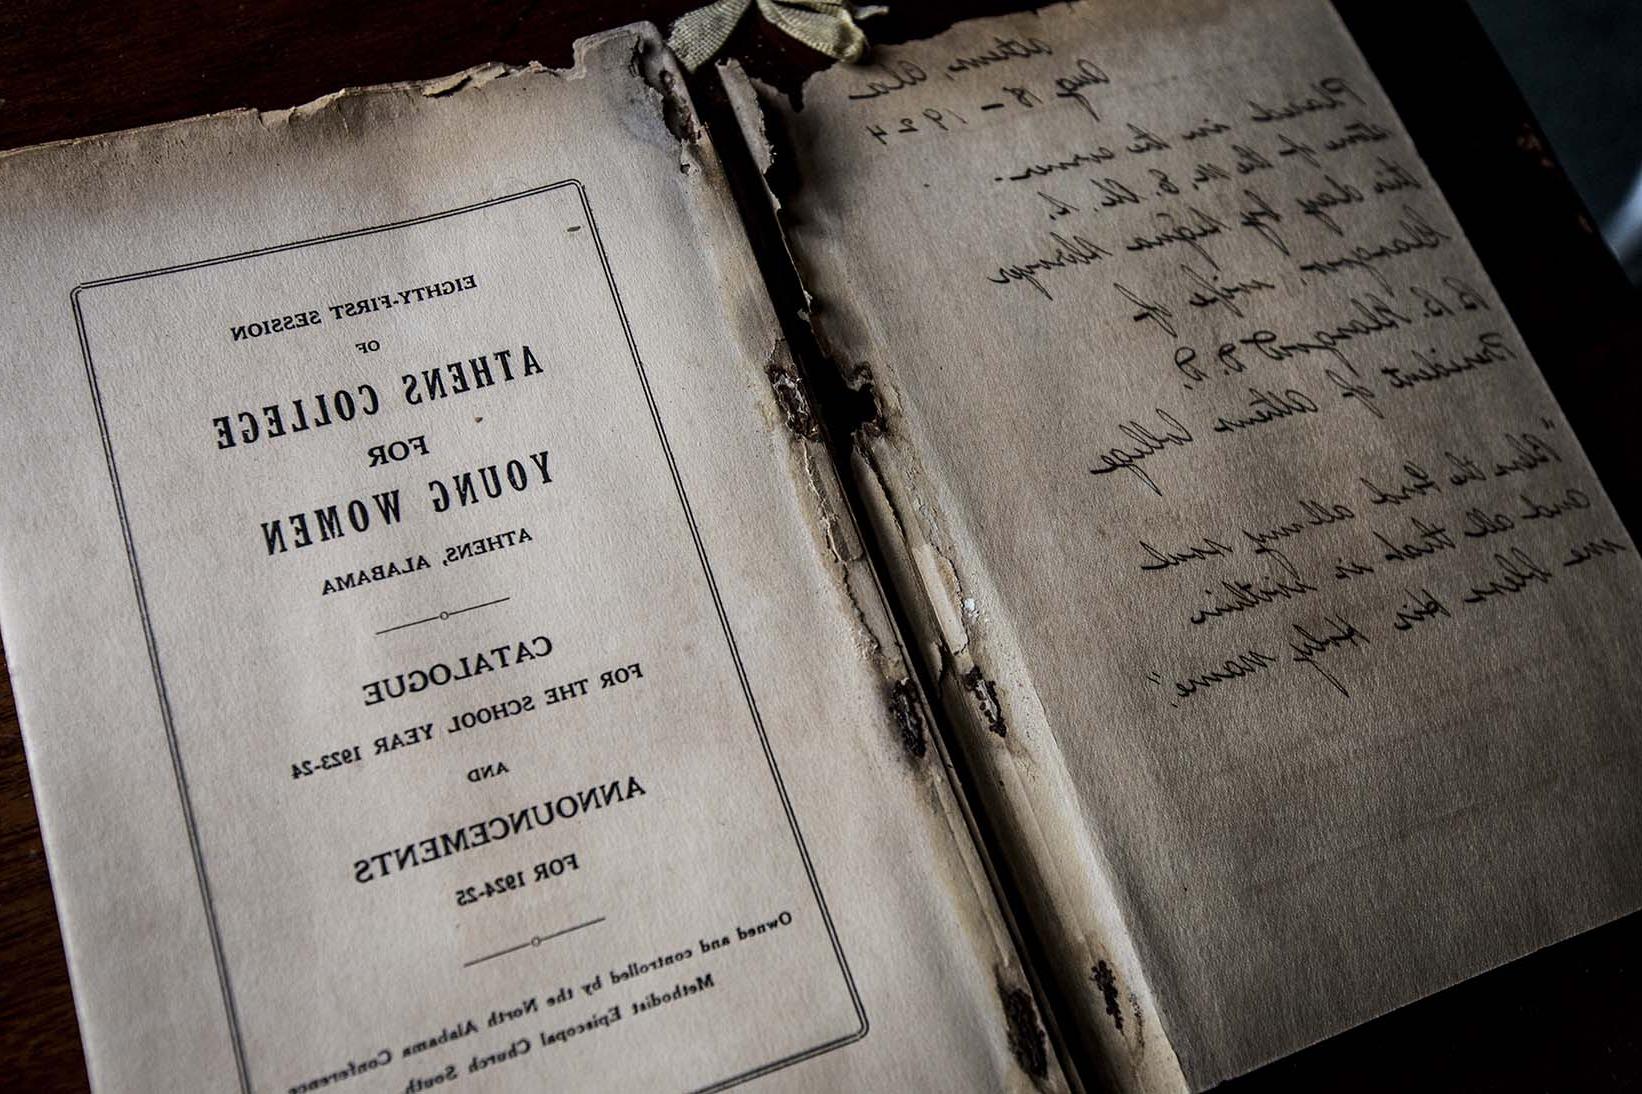 Athens, Ala
Aug 18 - 1924
Placed in the corner-
stone of the M. E. Ch. S.
this day by
wife of
B. B. Glasgow D. D.
President of Athens College
"Bless the Lord all my soul
and all that is within
me bless His Holy name".
EIGHTY-FIRST SESSION
OF
ATHENS COLLEGE
FOR
YOUNG WOMEN
ATHENS, ALABAMA
CATALOGUE
FOR THE SCHOOL YEAR 1923-24
AND
ANNOUNCEMENTS
FOR 1924-25
Owned and controlled by the North Alabama Conference
Methodist Episcopal Church South